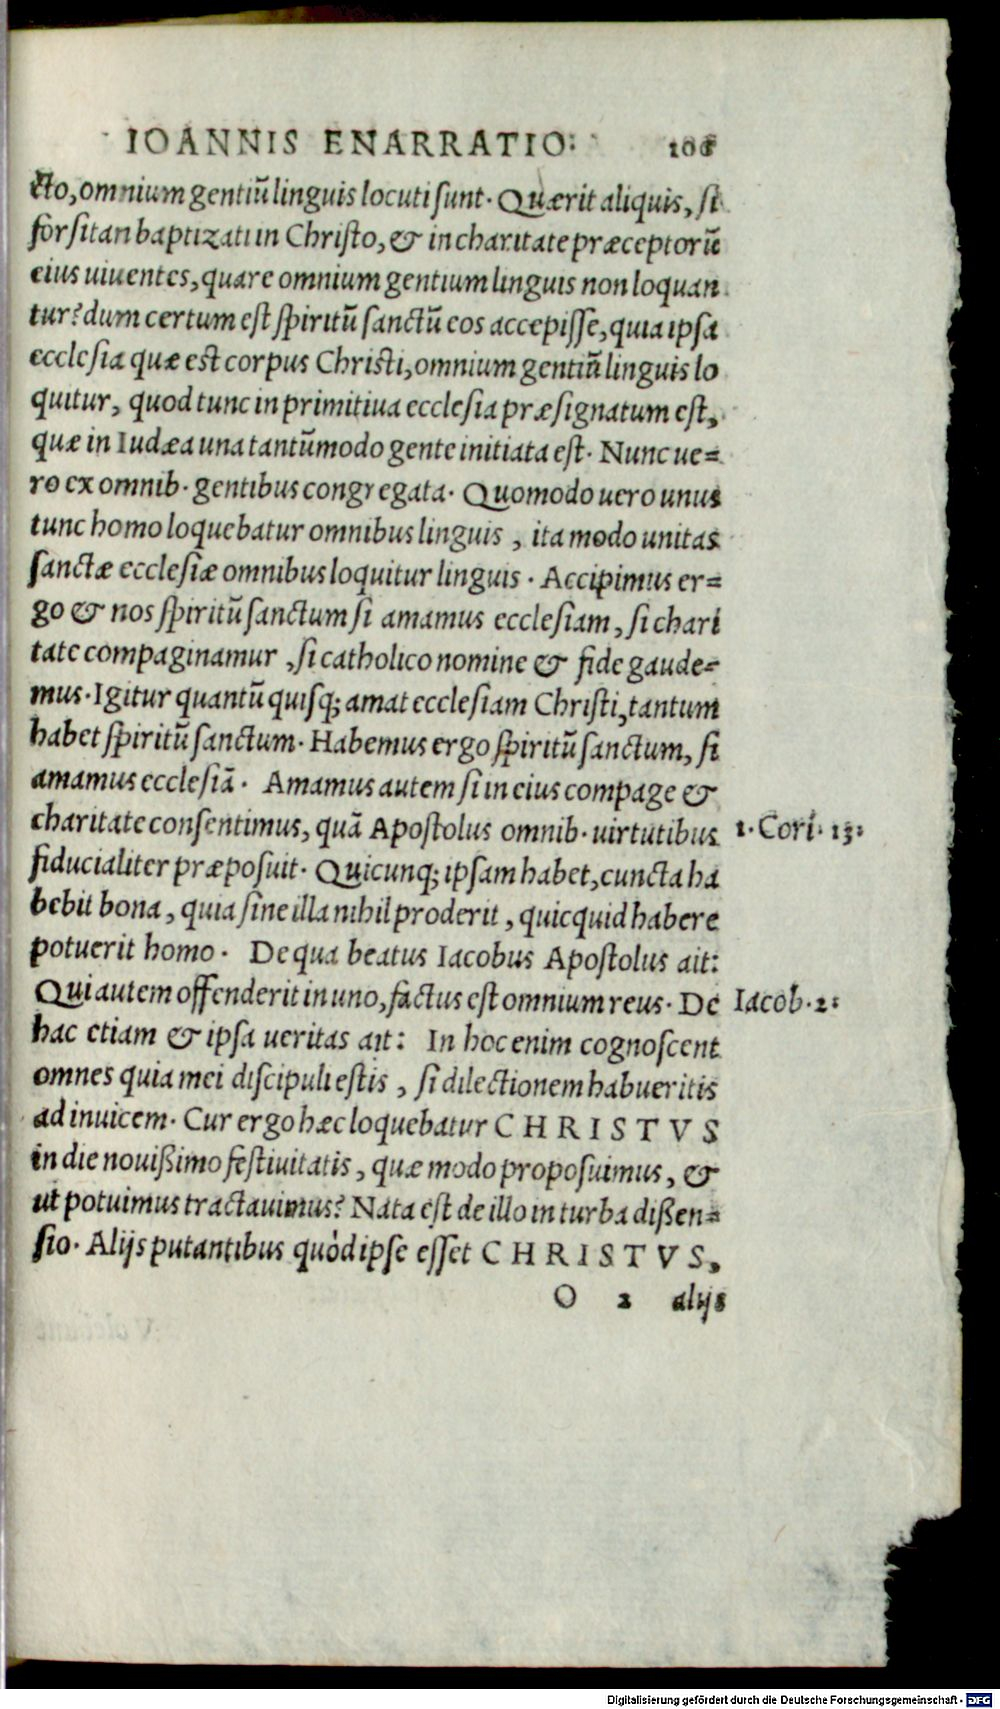 IOANNIS ENARRATIO: 106
cto, omnium gentiũ linguis locuti sunt. Quærit aliquis, si
forsitan baptizati in Christo, & in charitate præceptorũ
eius uiuentes, quare omnium gentium linguis non loquan
tur? dum certum est spiritũ sanctũ eos accepisse, quia ipsa
ecclesia quæ est corpus Christi, omnium gentiũ linguis lo
quitur, quod tunc in primitiua ecclesia præsignatum est,
quæ in Iudæa una tantũmodo gente initiata est. Nunc ue=
ro ex omnib. gentibus congregata. Quomodo uero unus
tunc homo loquebatur omnibus linguis, ita modo unitas
sanctæ ecclesiæ omnibus loquitur linguis. Accipimus er=
go & nos spiritũ sanctum si amamus ecclesiam, si chari
tate compaginamur, si catholico nomine & fide gaude=
mus. Igitur quantũ quisq; amat ecclesiam Christi, tantum
habet spiritũ sanctum. Habemus ergo spiritũ sanctum, si
amamus ecclesiã. Amamus autem si in eius compage &
charitate consentimus, quã Apostolus omnib. uirtutibus
1. Cori. 13:
fiducialiter præposuit. Quicunq; ipsam habet, cuncta ha
bebit bona, quia sine illa nihil proderit, quicquid habere
potuerit homo. De qua beatus Iacobus Apostolus ait:
Qui autem offenderit in uno, factus est omnium reus. De
Iacob. 2:
hac etiam & ipsa ueritas ait: In hoc enim cognoscent
omnes quia mei discipuli estis, si dilectionem habueritis
ad inuicem. Cur ergo hæc loquebatur CHRISTVS
in die nouißimo festiuitatis, quæ modo proposuimus, &
ut potuimus tractauimus? Nata est de illo in turba dißen=
sio. Alijs putantibus quòd ipse esset CHRISTVS,
O 2 alijs
Digitalisierung gefördert durch die Deutsche Forschungsgemeinschaft - DFG